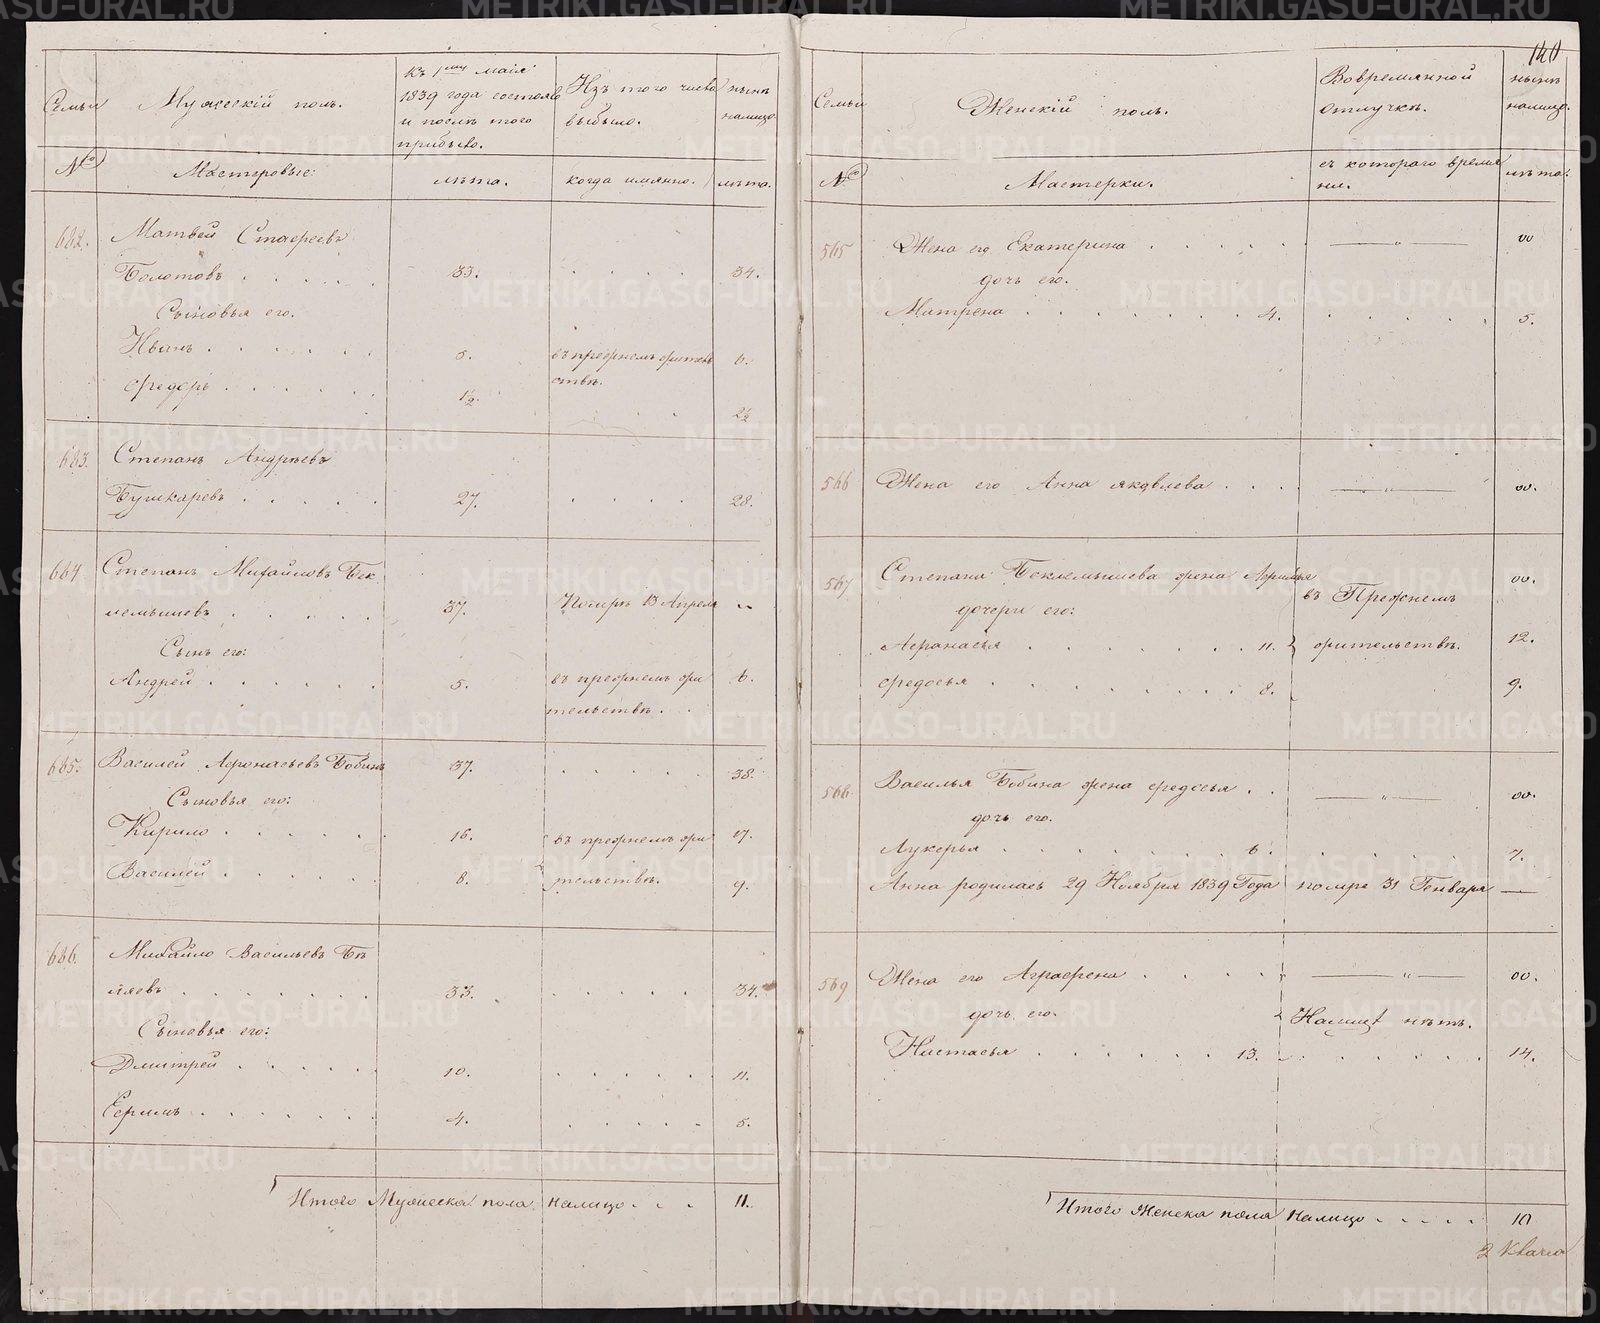 140
Семьи
Мужескій полъ.
Къ 1му маія
1839 года состояло
и послѣ того
прибыло.
Изъ того числа
выбыло.
нынѣ
налицо.
№
Мастеровые:
лѣта.
когда имянно.
лѣта.
682.
Матвей
Болотовъ . . . . . 33. . . . . . 34.
Сыновья его.
Иванъ . . . . . . 5. въ прежнемъ житель 6.
Федоръ . . . . . . 1½ ствѣ. . . . 2½
683.
Степанъ Андрѣевъ
Бушкаревъ . . . . . 27. . . . . 28.
684
Степанъ Михайловъ Бек
лемышевъ . . . . . 37. Помѣръ 13 Апреля "
Сынъ его:
Андрей . . . . . . 5. въ прежнемъ жи 6.
тельствѣ. . .
685.
Василей Афонасьевъ Бобинъ 37. . . . . . 38.
Сыновья его:
Кирило . . . . . . 16. въ прежнемъ жи 17.
Василей . . . . . . 8. тельствѣ. 9.
686.
Михайло Васильевъ Бѣ
ляевъ . . . . . . . 33. . . . . . 34.
Сыновья его:
Дмитрей . . . . . 10. . . . . . . 11.
Ефимъ . . . . . . 4. . . . . . . 5.
Итого Мужеска пола налицо . . . 11.
Семьи
Женскій полъ.
Вовремянной
отлучкѣ.
нынѣ
налицо.
№
Мастерки.
съ котораго время
ни.
лѣта.
565
Жена его Екатерина . . . . . . — " — 00
дочь его.
Матрена . . . . . . . 4. . . . . . 5.
566
Жена его Анна Яковлева . . . . — " — 00.
567
Степана Беклемышева жена 00.
дочери его: въ Прежнемъ
Афонасья . . . . . . . 11. жительствѣ. 12.
Федосья . . . . . . . . 8. 9.
568
Василья Бобина жена Федосья . . — " — 00.
дочь его.
Лукерья . . . . . . . 6. . . . . . 7.
Анна родилась 29 Ноября 1839 Года помре 31 Генваря —
569
Жена его Аграфена . . . . . — " — 00.
дочь его. Налицѣ нѣтъ.
Настасья . . . . . . 13. . . . . . . 14.
Итого Женска пола налицо . . . . . 10
METRIKI.GASO-URAL.RU